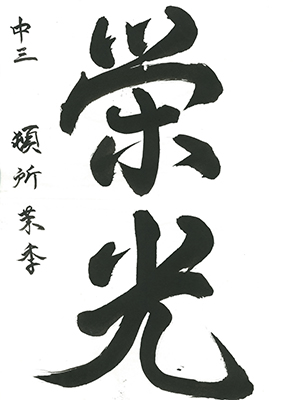 栄光
中三 頬所茉季